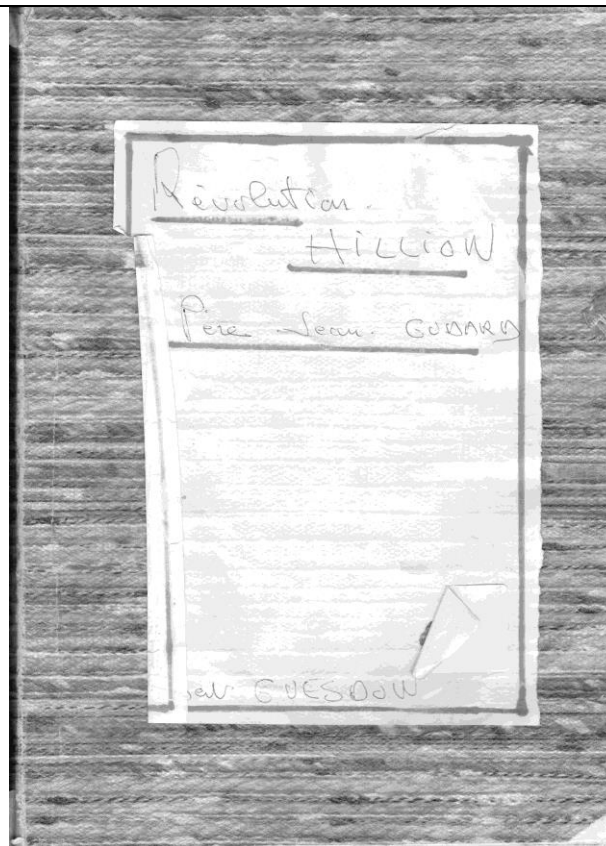 Révolution.
HILLION
Père Jean. GUDARD
GUESDON